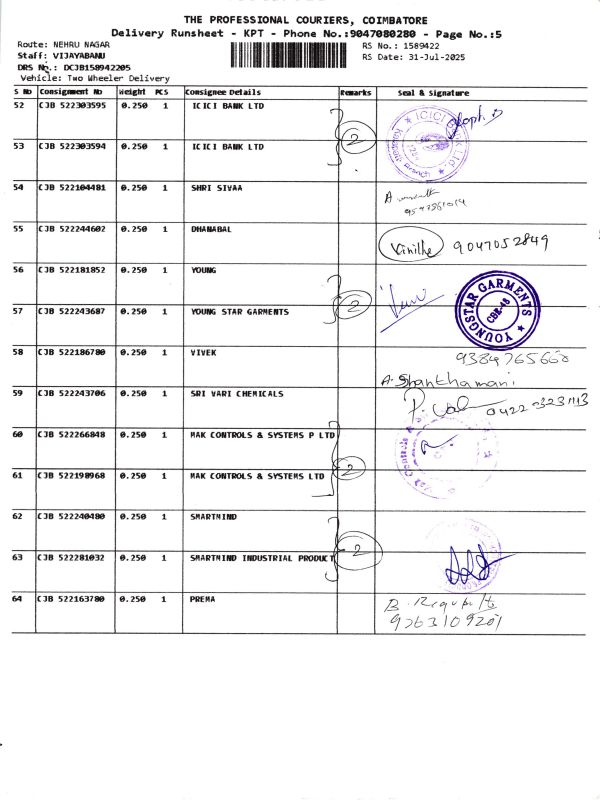 THE PROFESSIONAL COURIERS, COIMBATORE
Delivery Runsheet - KPT - Phone No.:9047080280 - Page No.:5
Route: NEHRU NAGAR
RS No.: 1589422
Staff: VIJAYABANU
RS Date: 31-Jul-2025
DRS No.: DCJB158942205
Vehicle: Two Wheeler Delivery
S No Consignment No Weight PCS Consignee Details Remarks Seal & Signature
52 CJB 522303595 0.250 1 ICICI BANK LTD
2
ICICI Bank Ltd
53 CJB 522303594 0.250 1 ICICI BANK LTD
54 CJB 522104481 0.250 1 SHRI SIVAA
55 CJB 522244602 0.250 1 DHANABAL
9047052849
56 CJB 522181852 0.250 1 YOUNG
2
YOUNGSTAR GARMENTS
57 CJB 522243687 0.250 1 YOUNG STAR GARMENTS
58 CJB 522186780 0.250 1 VIVEK
9384765668
A. Shanthamani
59 CJB 522243706 0.250 1 SRI VARI CHEMICALS
60 CJB 522266848 0.250 1 MAK CONTROLS & SYSTEMS P LTD
2
61 CJB 522198968 0.250 1 MAK CONTROLS & SYSTEMS LTD
62 CJB 522240480 0.250 1 SMARTMIND
2
63 CJB 522281032 0.250 1 SMARTMIND INDUSTRIAL PRODUCT
64 CJB 522163780 0.250 1 PREMA
9363109201